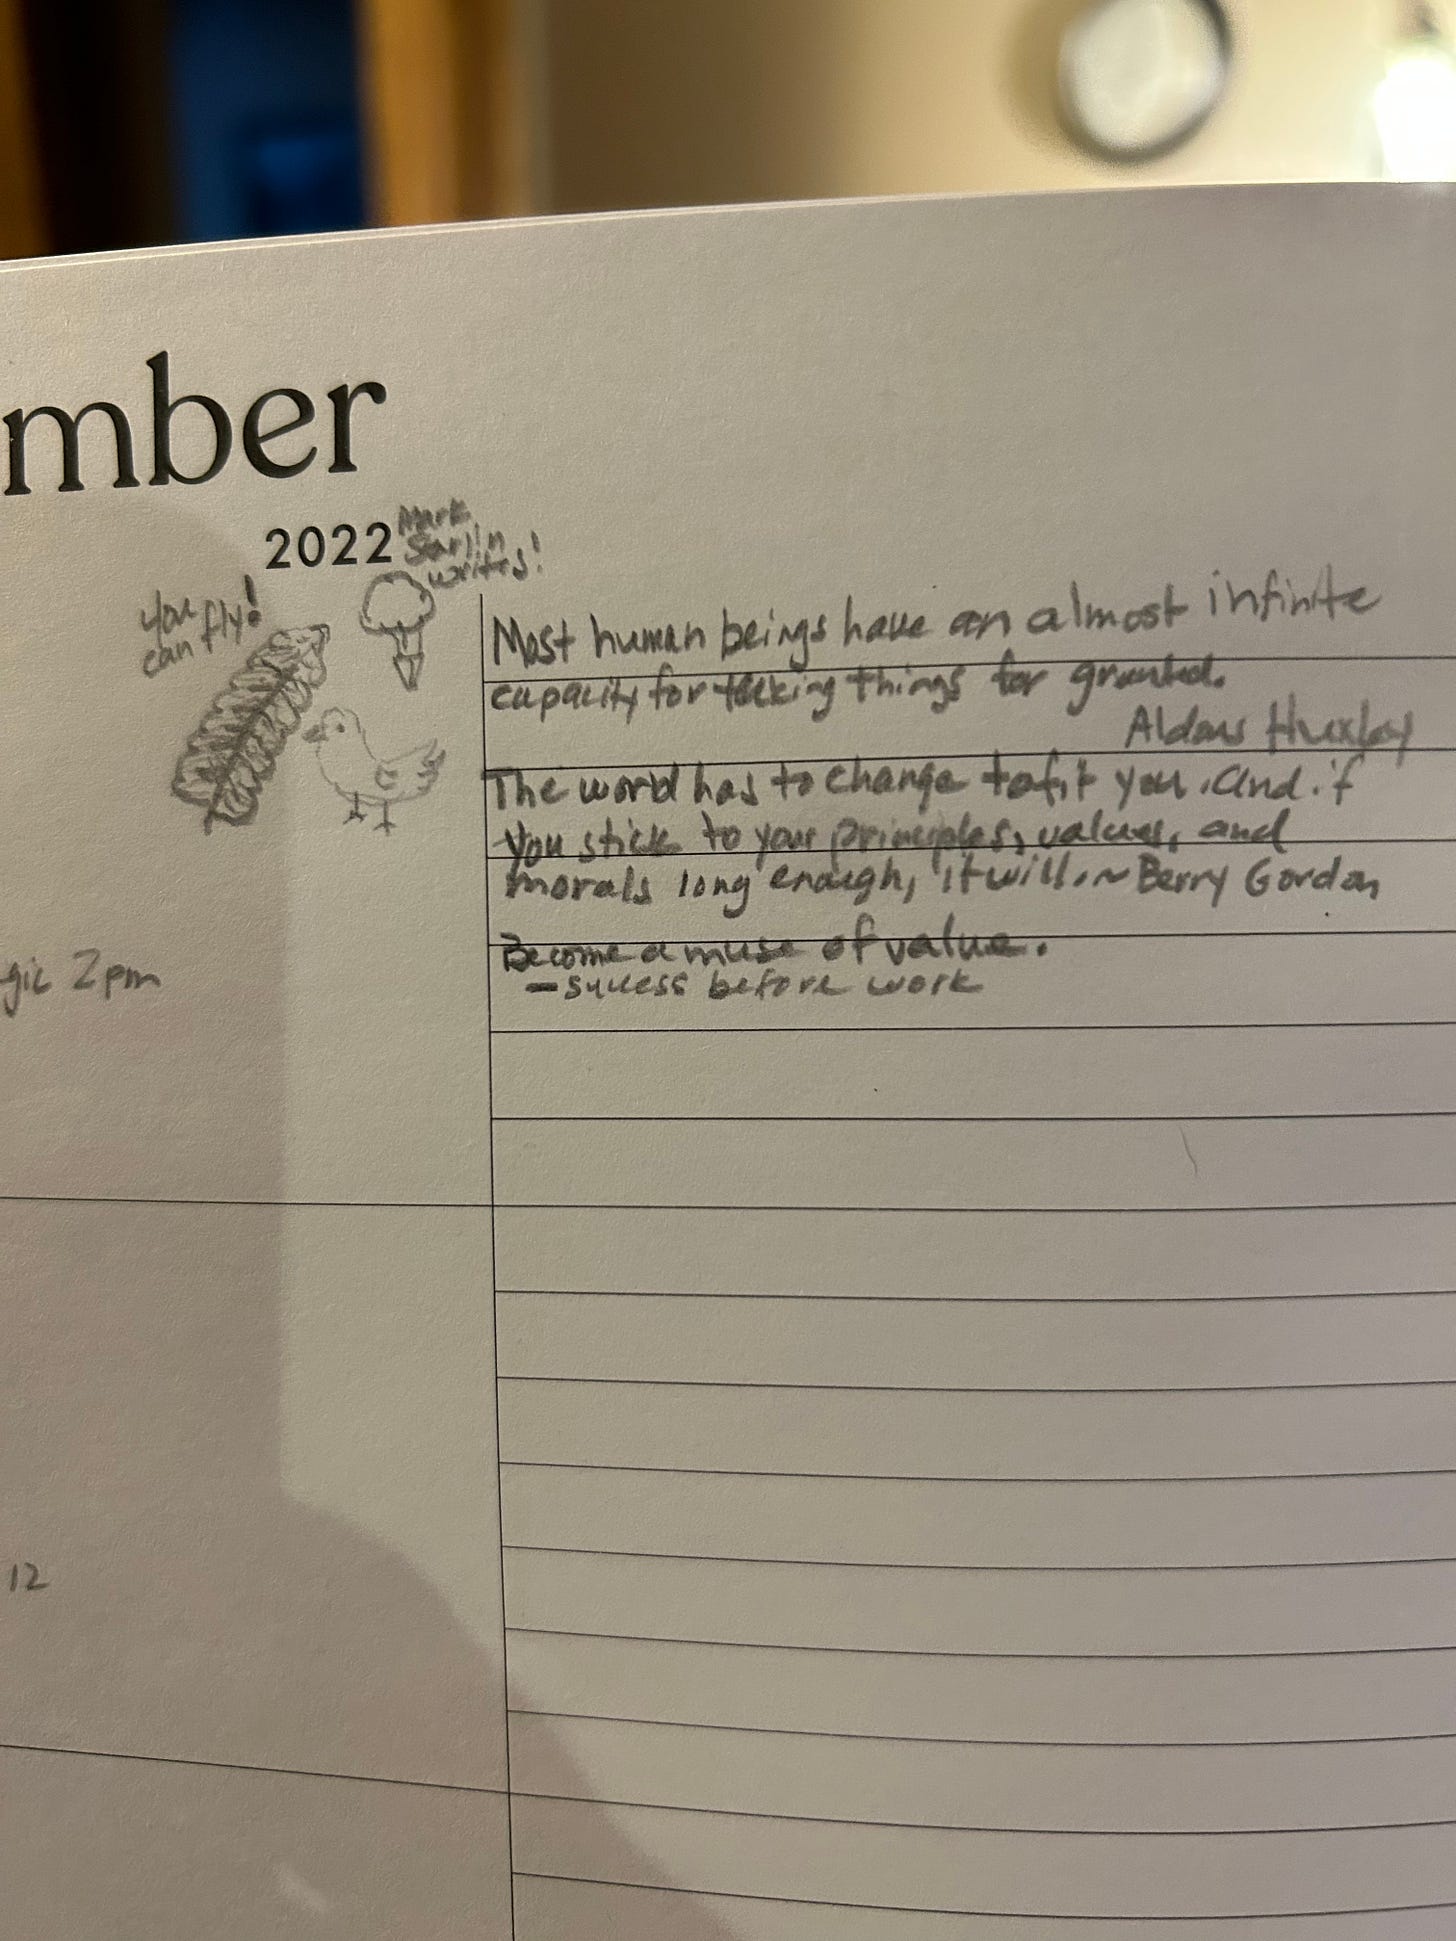 mber
2022
Mark
Starlin
writes!
you
can fly!
Most human beings have an almost infinite
capacity for taking things for granted.
Aldous Huxley
The world has to change to fit you. And if
you stick to your principles, values, and
morals long enough, it will. ~ Berry Gordon
Become a muse of value.
- success before work
gic 2pm
12